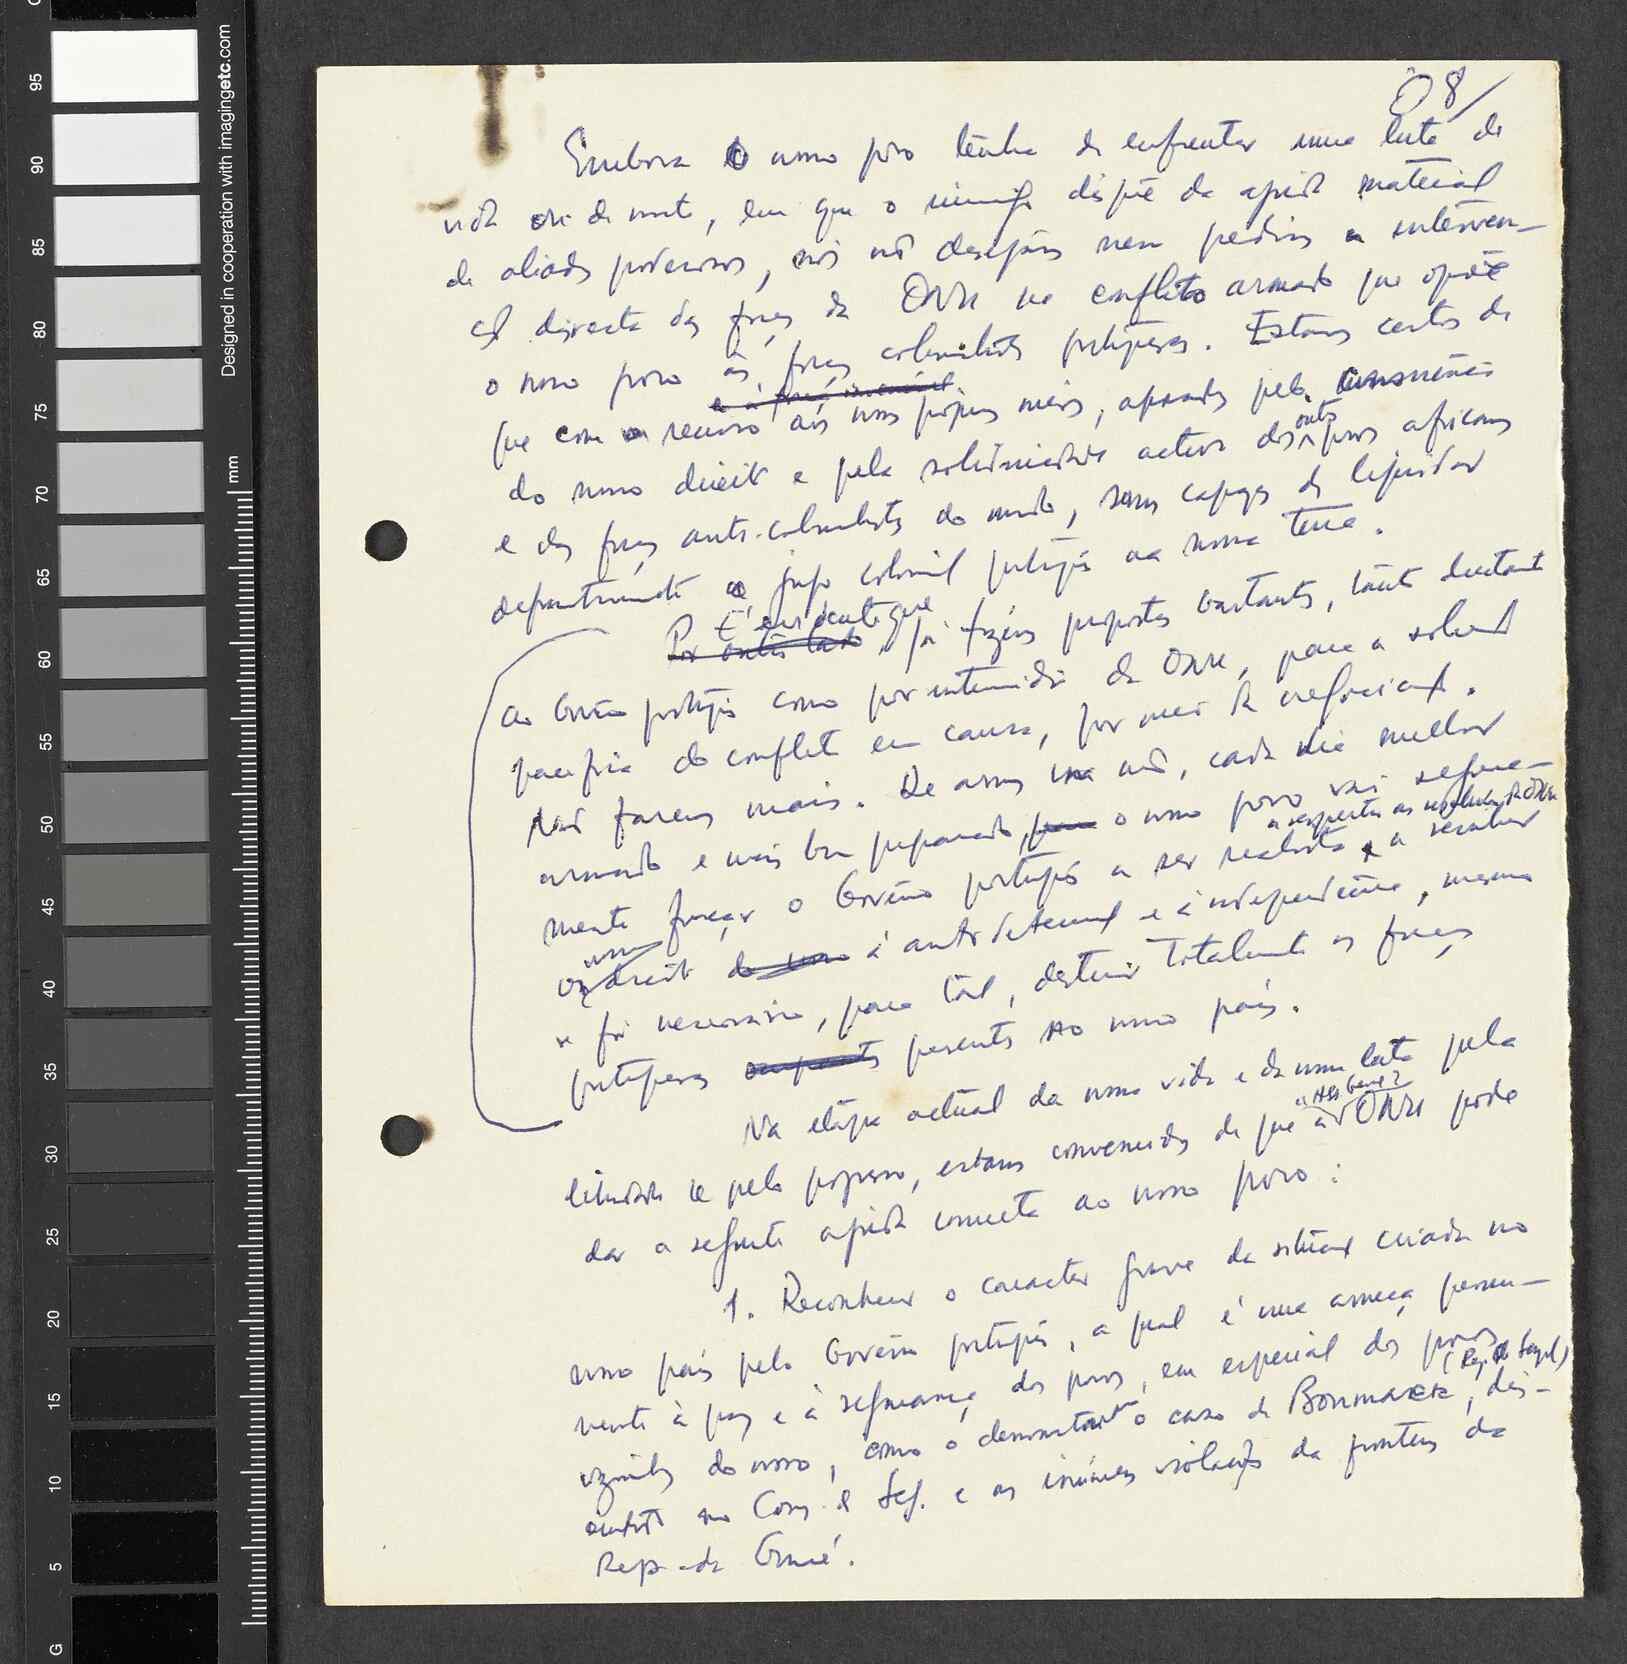 8/
Embora o nosso povo tenha de enfrentar uma luta de
vida ou de morte, em que o inimigo dispõe da ajuda material
de aliados poderosos, nós não desejamos nem pedimos a interven-
ção directa das forças da ONU no conflito armado que opõe
o nosso povo às forças colonialistas portuguesas. Estamos certos de
que com o recurso aos nossos próprios meios, apoiados pela consciência
do nosso direito e pela solidariedade activa dos outros povos africanos
e das forças anti-colonialistas do mundo, somos capazes de liquidar
definitivamente o jugo colonial português na nossa terra.
É evidente que já fizemos propostas bastantes, tanto directamente
ao Govêrno português como por intermédio da ONU, para a solução
pacífica do conflito em causa, por meio de negociações.
Não faremos mais. De armas na mão, cada dia melhor
armado e mais bem preparado, o nosso povo vai segura-
mente forçar o Govêrno português a ser realista, a respeitar as resoluções da ONU a reconhecer
o nosso direito à autodeterminação e à independência, mesmo
se fôr necessário, para tal, destruir totalmente as forças
portuguesas presentes no nosso país.
Na etapa actual da nossa vida e da nossa luta pela
liberdade e pelo progresso, estamos convencidos de que a "Ass. Geral" ONU pode
dar a seguinte ajuda concreta ao nosso povo:
1. Reconhecer o caracter grave da situação criada no
nosso país pelo Govêrno português, a qual é uma ameaça perma-
nente à paz e à segurança dos povos, em especial dos povos
vizinhos do nosso, como o demonstram o caso de Bounack (Rep. do Senegal), dis-
cutido no Cons. de Seg. e as inúmeras violações da fronteira da
Rep. da Guiné.
Designed in cooperation with imagingetc.com
mm
95
90
85
80
75
70
65
60
55
50
45
40
35
30
25
20
15
10
5
G